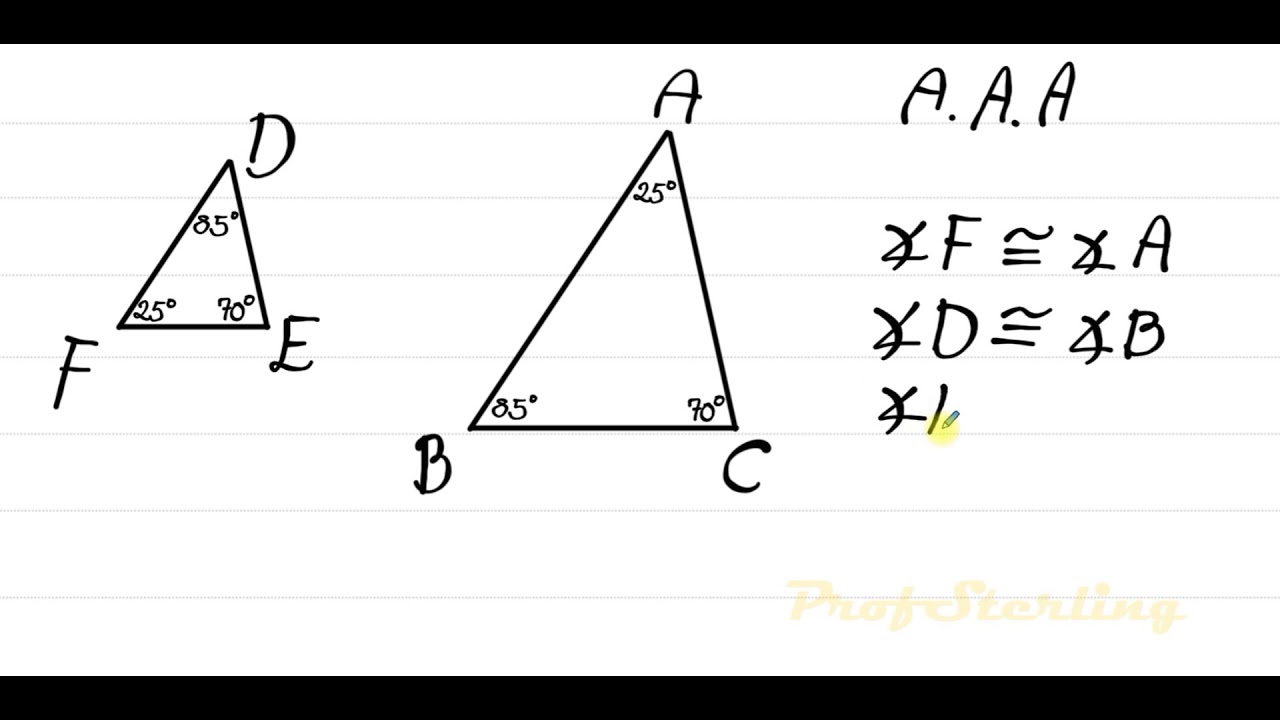 A.A.A
D
85°
25° 70°
F
E
A
25°
85° 70°
B
C
∡F ≅ ∡A
∡D ≅ ∡B
∡
ProfSterling